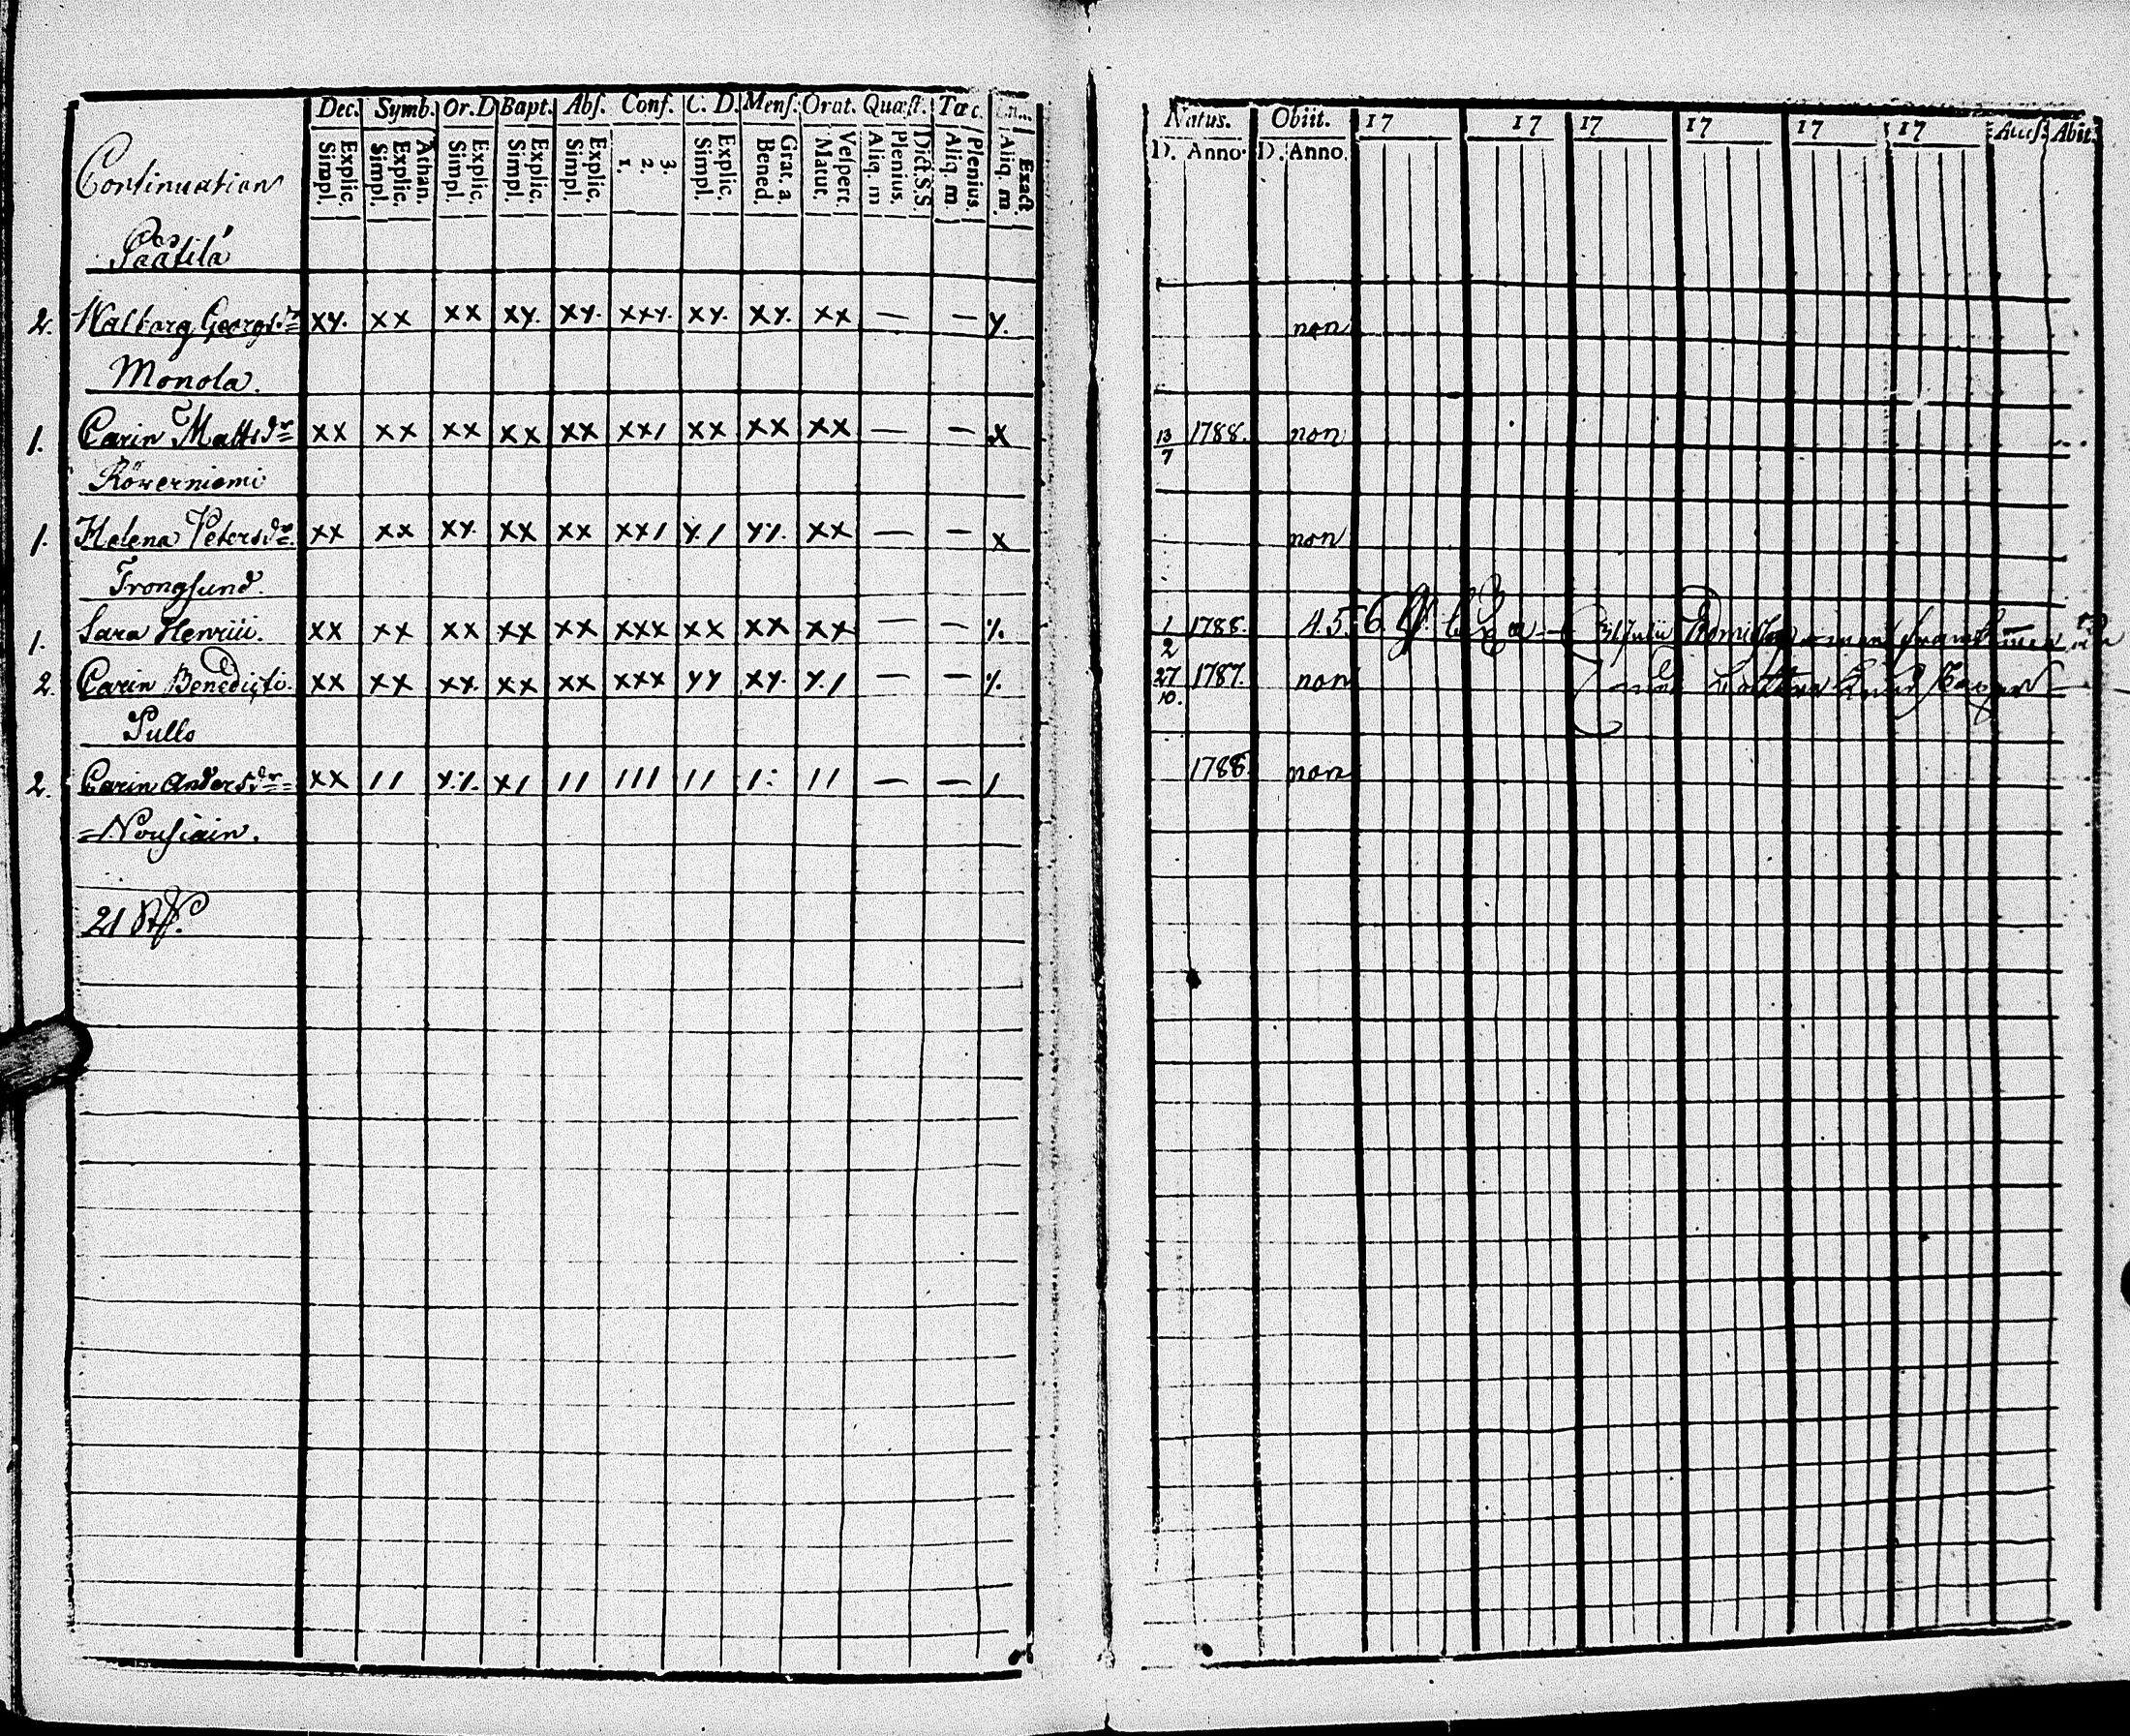 Dec. Symb. Or.D Bapt. Abſ. Conf. C. D. Menſ. Orat. Quæſt. Tac.
Explic. Simpl. Athan. Explic. Simpl. Explic. Simpl. Explic. Simpl. Explic. Simpl. 3. 2. 1. Explic. Simpl. Grat. a Bened. Veſpert. Matut. Dict.S.S. Plenius. Aliq. m Plenius. Aliq. m. Exact. Aliq. m.
Continuation
Paatila
2. Walborg Georgsdr xy. xx xx xy. xy. xxy. xy. xy. xx — — y.
Monola.
1. Carin Mattsdr xx xx xx xx xx xx/ xx xx xx — — x
Röwerniemi
1. Helena Petersdr xx xx xy. xx xx xx/ y./ y/. xx — — x
Trongsund.
1. Sara Henrici. xx xx xx xx xx xxx xx xx xx — — /.
2. Carin Benedicti. xx xx xx. xx xx xxx yy xy. y./ — — /.
Pullo
2. Carin Andersdr xx // x/. x/ // /// // /: // — — /
=Nousiain.
21 St.
Natus. Obiit. 17 17 17 17 17 17 Acceſ. Abit.
D. Anno. D. Anno.
non
13/7 1788. non
non
1/2 1788. 4.5.6. 31 Julii
27/10. 1787. non
1788 non